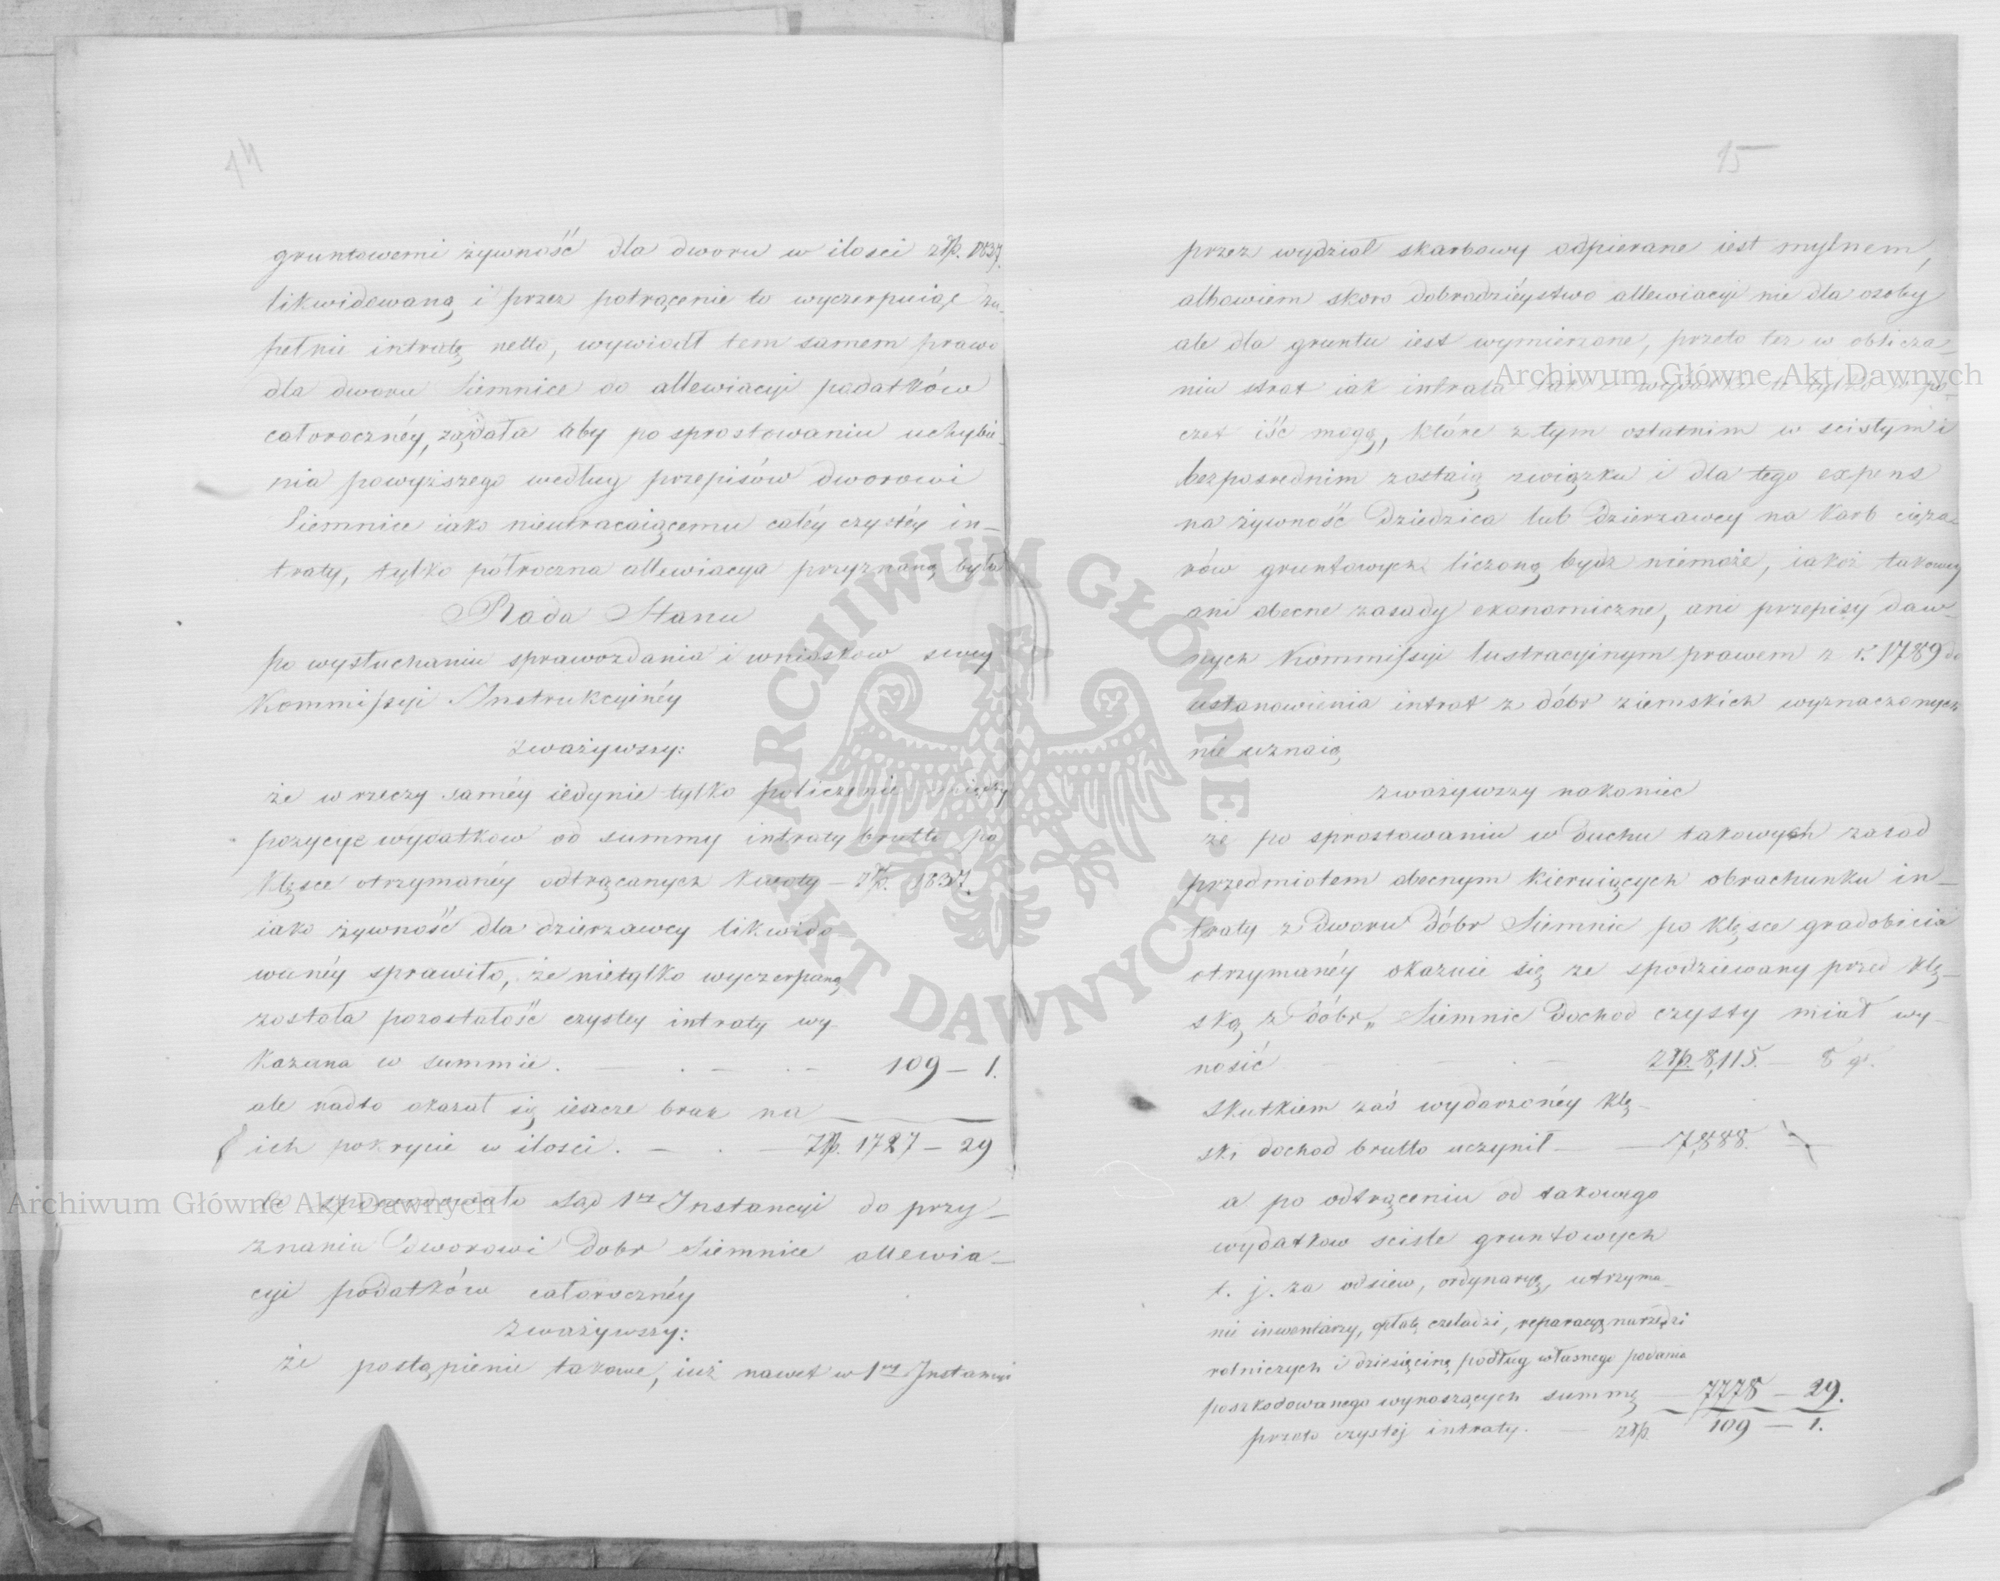 14
gruntowemi żywność dla dworu w ilosci złp. 1837.
likwidowaną i przez potrącenie to wyczerpuiąc zu-
pełnie intratę netto, wywiodł tem samem prawo
dla dworu Siemnice do allewiacyi podatków
całorocznéy, żądała aby po sprostowaniu uchybie-
nia powyższego według przepisów dworowi
Siemnice iako nieutracaiącemu całéy czystéy in-
traty, tylko półroczna allewiacya przyznaną była
Rada Stanu
po wysłuchaniu sprawozdania i wniosków swey
Kommissyi Instrukcyinéy
zważywszy:
że w rzeczy saméy iedynie tylko policzenie między
pozycye wydatkow od summy intraty brutto po
klęsce otrzymanéy odtrącanych kwoty – złp. 1837.
iako żywność dla dzierzawcy likwido
wanéy sprawiło, że nietylko wyczerpaną
została pozostałość czystey intraty wy-
kazana w summie. — . — . — 109 – 1.
ale nadto okazał się ieszcze brak na
ich pokrycie w ilosci. — . — Złp. 1727 – 29
co spowodowało Sąd 1ey Instancyi do przy-
znania Dworowi Dobr Siemnice allewia-
cyi podatków całorocznéy
zważywszy:
że postąpienie takowe, iuż nawet w 1ey Instancyi
15
przez wydział skarbowy odpierane iest mylnem,
albowiem skoro dobrodzieystwo allewiacyi nie dla osoby
ale dla gruntu iest wymierzone, przeto też w oblicza-
niu strat iak intrata tak i wydatki te tylko w po-
czet iść mogą, które z tym ostatnim w scisłym i
bezposrednim zostaią związku i dla tego expens
na żywność Dziedzica lub Dzierzawcy na karb cięża-
rów gruntowych liczoną bydz niemoże, iakoż takowey
ani obecne zasady ekonomiczne, ani przepisy daw-
nych Kommissyi lustracyinym prawem z r. 1789 do
ustanowienia intrat z dóbr ziemskich wyznaczonych
nie uznaią
zważywszy nakoniec
że po sprostowaniu w duchu takowych zasad
przedmiotem obecnym kieruiących obrachunku in-
traty z Dworu Dóbr Siemnic po klęsce gradobicia
otrzymanéy okazuie się że spodziewany przed klę-
ską z Dóbr „ Siemnic Dochod czysty miał wy-
nosić — . — złp. 8,115. — 8 gr.
Skutkiem zaś wydarzonéy klę-
ski dochod brutto uczynił — 7,888. —
a po odtrąceniu od takowego
wydatkow scisle gruntowych
t. j. za odsiew, ordynaryę, utrzyma-
nie inwentarzy, opłatę czeladzi, reparacyę narzędzi
rolniczych i dziesięcinę podług własnego podania
poszkodowanego wynoszących summę — 7778 – 29.
przeto czystej intraty. — złp. 109 – 1.
ARCHIWUM GŁÓWNE AKT DAWNYCH
Archiwum Główne Akt Dawnych
Archiwum Główne Akt Dawnych